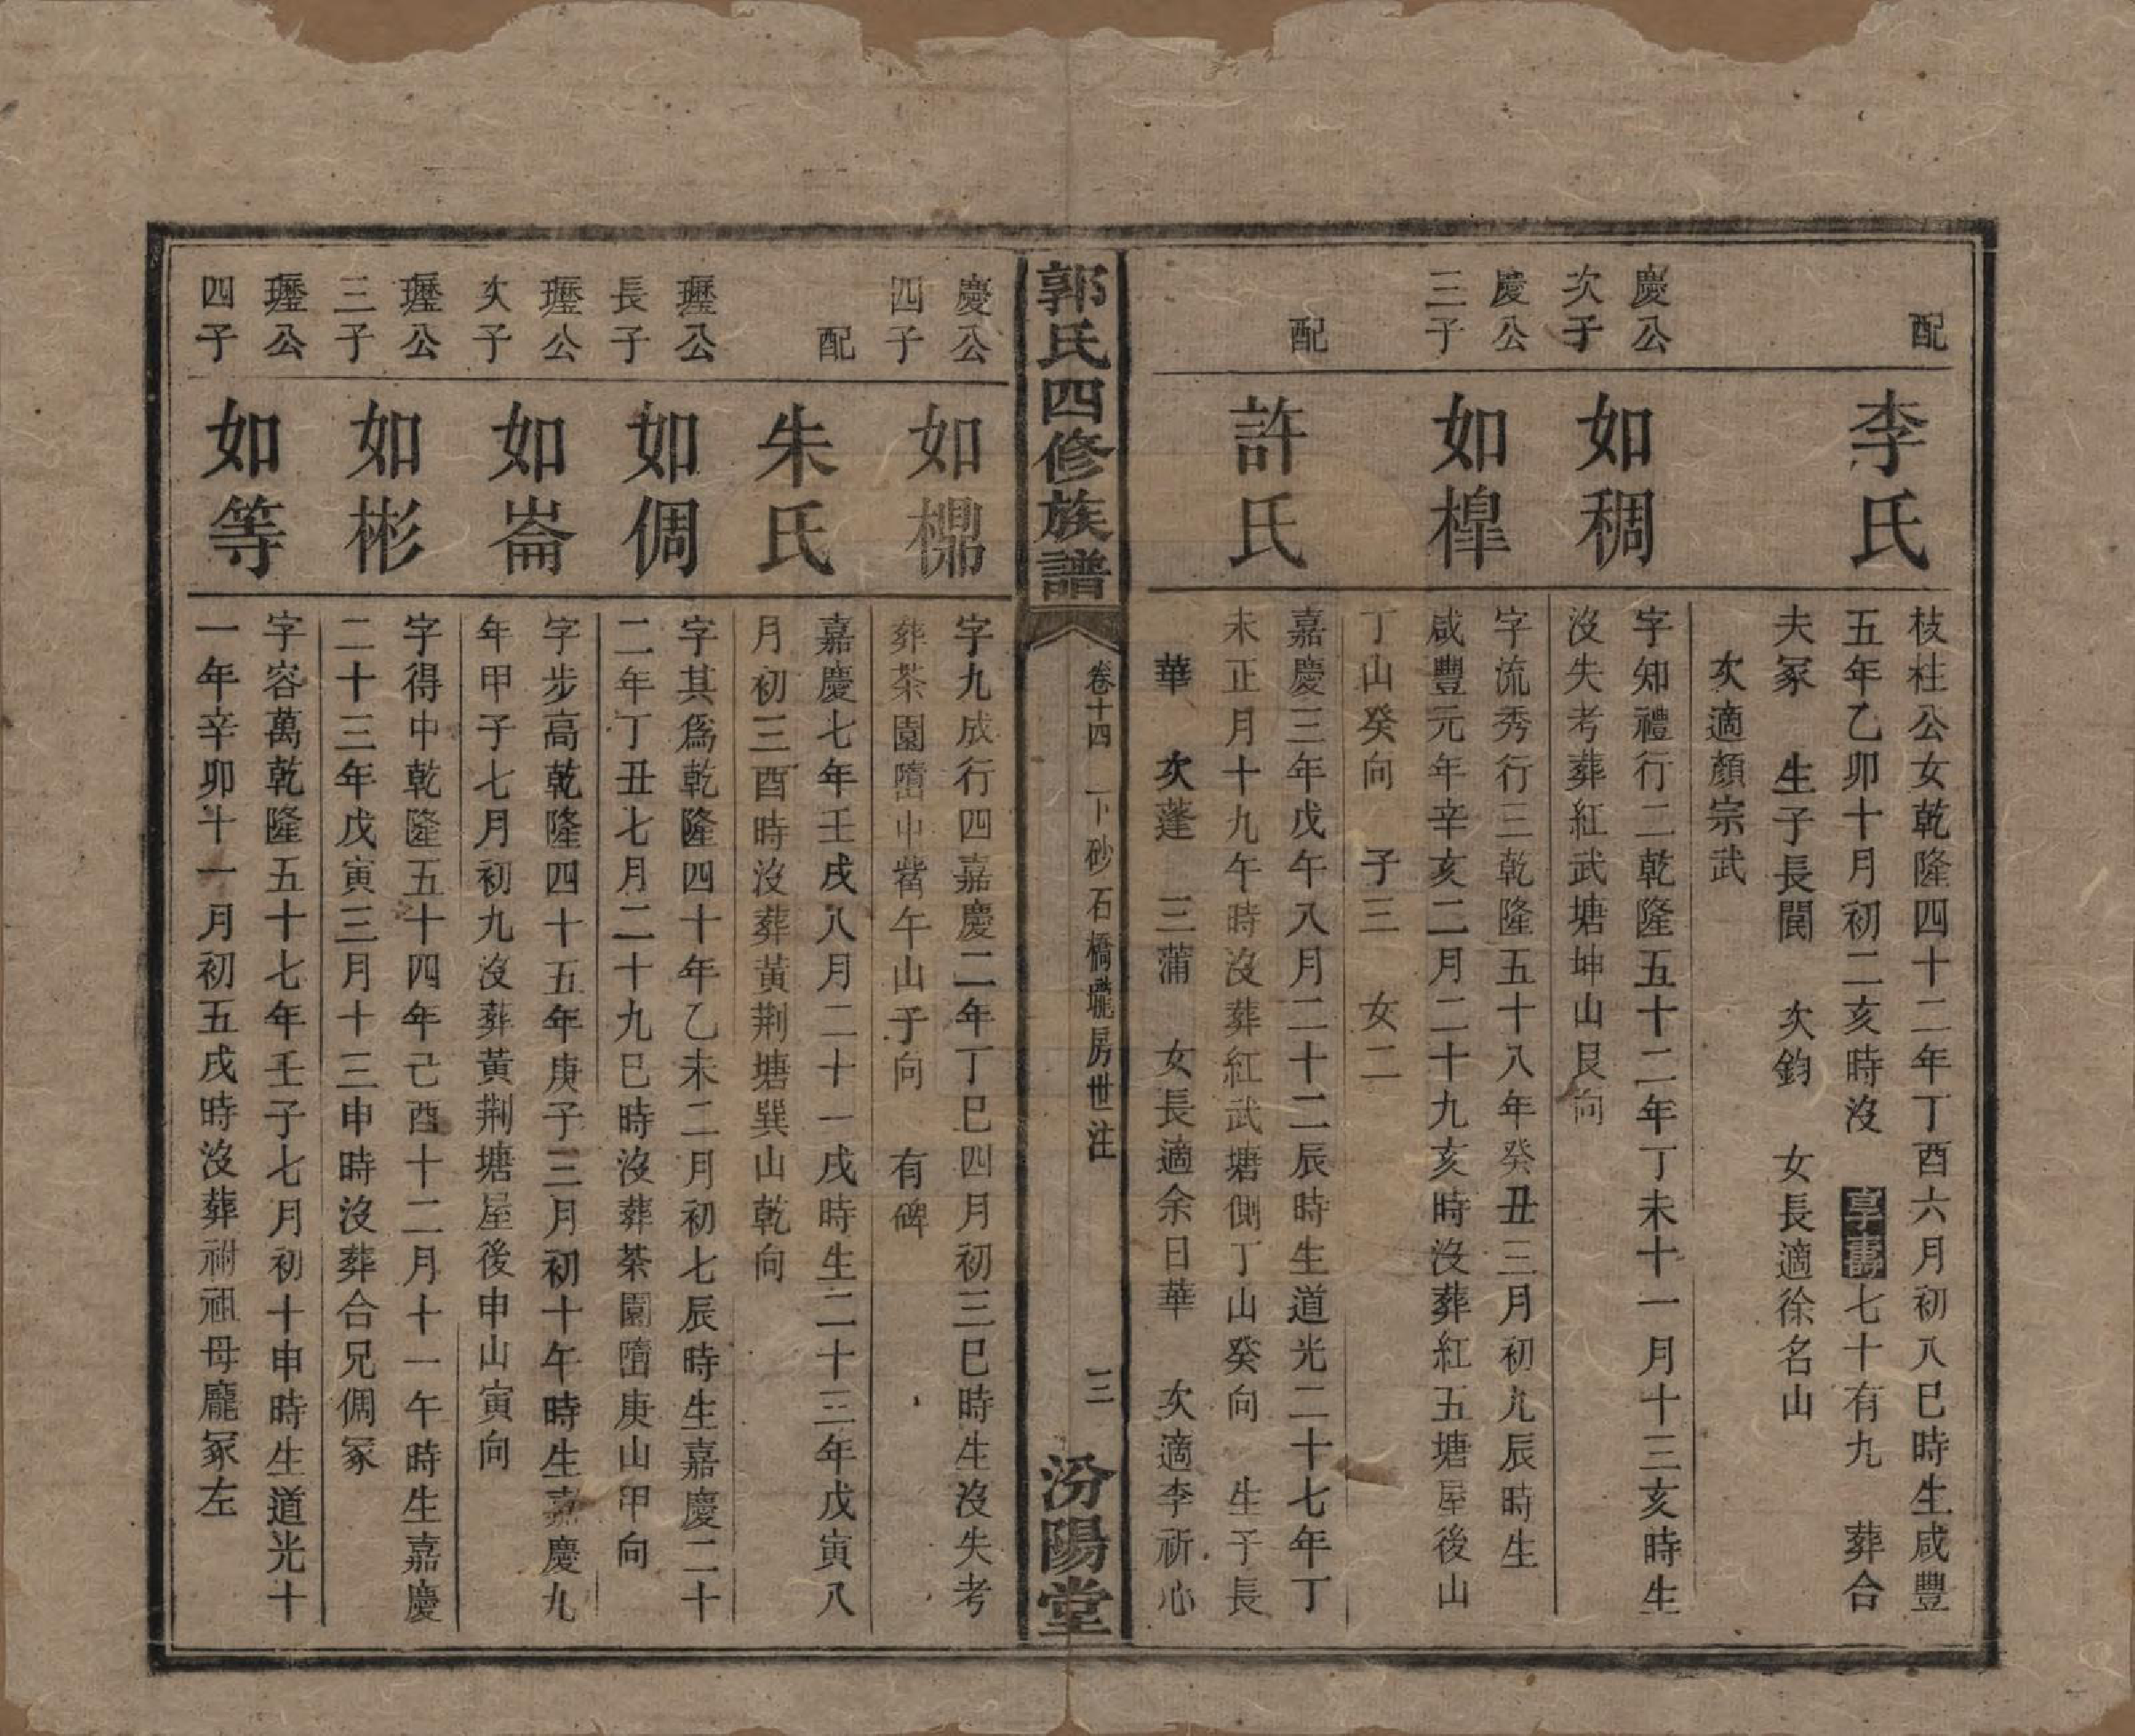 配
李氏
枝桂公女乾隆四十二年丁酉六月初八巳時生咸豐
五年乙卯十月初二亥時沒 享壽七十有九 葬合
夫冢 生子長閏 次鈞 女長適徐名山
次適顏宗武
慶公
次子
如稠
字知禮行二乾隆五十二年丁未十一月十三亥時生
沒失考葬紅武塘坤山艮向
慶公
三子
如槹
字流秀行三乾隆五十八年癸丑三月初九辰時生
咸豐元年辛亥二月二十九亥時沒葬紅五塘屋後山
丁山癸向 子三 女二
配
許氏
嘉慶三年戊午八月二十二辰時生道光二十七年丁
未正月十九午時沒葬紅武塘側丁山癸向 生子長
華 次蓬 三蒲 女長適余日華 次適李祈心
郭氏四修族譜
卷十四 下砂石橋瓏房世注
三
汾陽堂
慶公
四子
如㮨
字九成行四嘉慶二年丁巳四月初三巳時生沒失考
葬茶園墮中嘴午山子向 有碑
配
朱氏
嘉慶七年壬戌八月二十一戌時生二十三年戊寅八
月初三酉時沒葬黃荆塘巽山乾向
瓑公
長子
如倜
字其爲乾隆四十年乙未二月初七辰時生嘉慶二十
二年丁丑七月二十九巳時沒葬茶園墮庚山甲向
瓑公
次子
如崙
字步高乾隆四十五年庚子三月初十午時生嘉慶九
年甲子七月初九沒葬黃荆塘屋後申山寅向
瓑公
三子
如彬
字得中乾隆五十四年己酉十二月十一午時生嘉慶
二十三年戊寅三月十三申時沒葬合兄倜冢
瓑公
四子
如等
字容萬乾隆五十七年壬子七月初十申時生道光十
一年辛卯十一月初五戌時沒葬祔祖母龐冢左